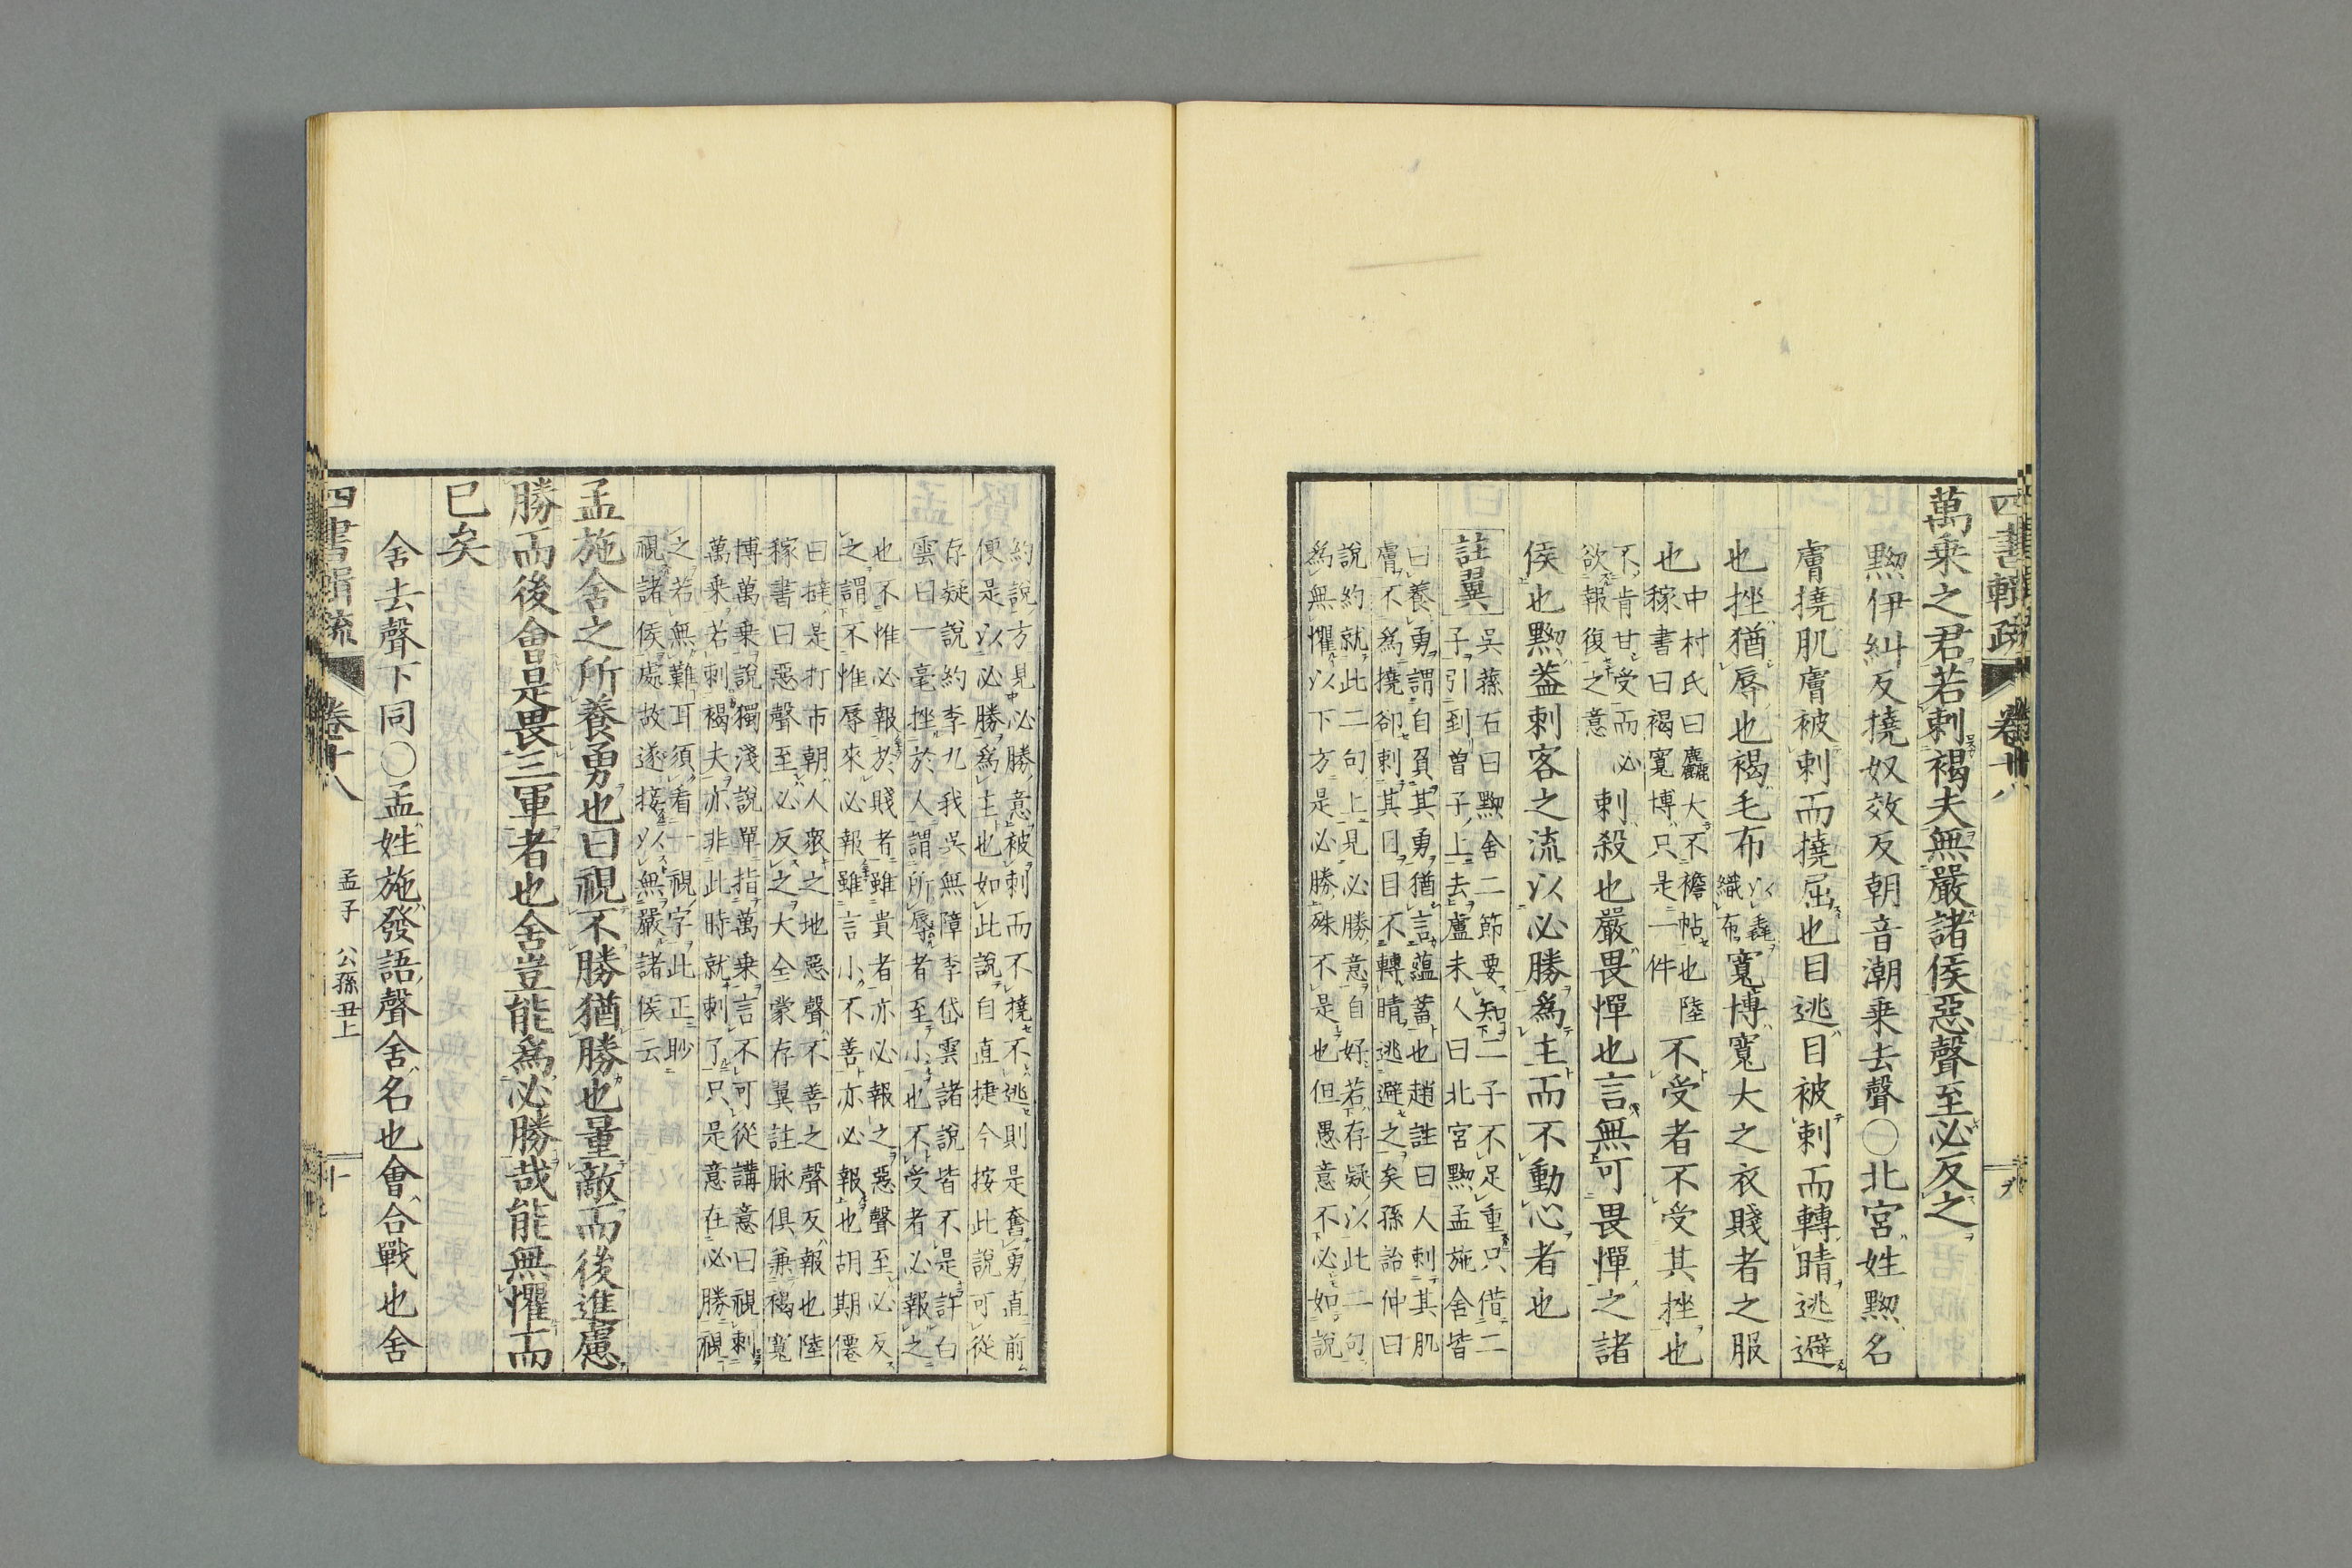 四書輯疏 卷十八
萬乗之君若刺褐夫無嚴諸侯惡聲至必反之
黝伊糾反撓奴效反朝音潮乗去聲○北宮姓黝名
膚撓肌膚被刺而撓屈也目逃目被刺而轉睛逃避
也挫猶辱也褐毛布以毳織布寬博寬大之衣賤者之服
也中村氏曰麤大不襜帖也陸
稼書曰褐寬博只是一件不受者不受其挫也
不肯甘受而必
欲報復之意刺殺也嚴畏憚也言無可畏憚之諸
侯也黝蓋刺客之流以必勝爲主而不動心者也
註翼 吳蓀石曰黝舍二節要知二子不足重只借二
子引到曽子上去盧未人曰北宮黝孟施舍皆
曰養勇謂自負其勇猶言蘊蓄也趙註曰人刺其肌
膚不爲撓卻刺其目目不轉睛逃避之矣孫詒仲曰
說約就此二句上見必勝意自好若存疑以此二句
爲無懼以下方是必勝殊不是也但愚意不必如說
約說方見必勝意被刺而不撓不逃則是奮勇直前
便是以必勝爲主也如此說自直捷今按此說可從
存疑說約李九我吳無障李岱雲諸說皆不是許白
雲曰一毫挫於人謂所辱者至小也不受者必報之
也不惟必報於賤者雖貴者亦必報之惡聲至必反
之謂不惟辱來必報雖言小不善亦必報也胡期僊
曰撻是打市朝人衆之地惡聲不善之聲反報也陸
稼書曰惡聲至必反之大全蒙存翼註脉俱兼褐寬
博萬乗說獨淺說單指萬乗言不可從講意曰視刺
萬乗若刺褐夫亦非此時就刺了只是意在必勝視
之若無難耳須看一視字此正眇
視諸侯處故遂接以無嚴諸侯云
孟施舍之所養勇也曰視不勝猶勝也量敵而後進慮
勝而後會是畏三軍者也舍豈能爲必勝哉能無懼而
已矣
舍去聲下同○孟姓施發語聲舍名也會合戰也舍
四書輯疏 卷十八 孟子 公孫丑上 十